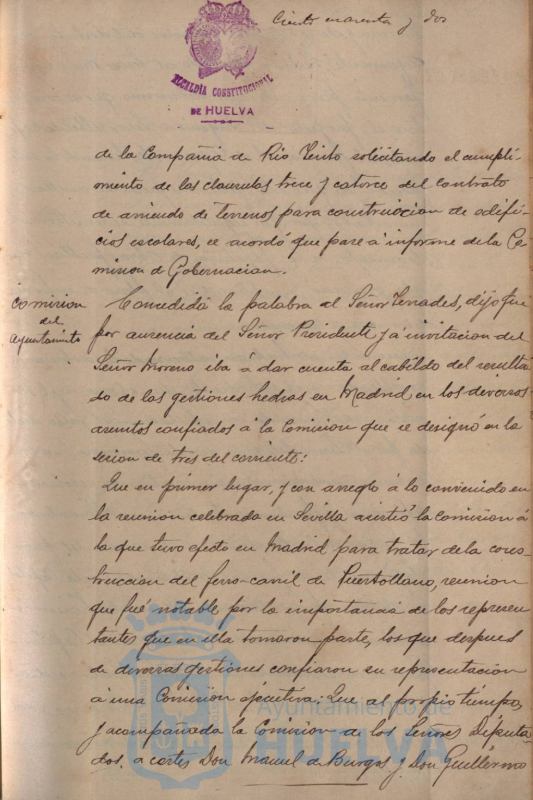 Ciento cuarenta y dos
ALCALDIA CONSTITUCIONAL
DE HUELVA
de la Compañia de Rio Tinto solicitando el cumpli-
miento de las clausulas trece y catorce del contrato
de arriendo de terrenos para construccion de edifi-
cios escolares, se acordó que pase á informe de la Co-
mision de Gobernacion.
Comision
del
Ayuntamiento
Concedida la palabra al Señor Terrades, dijo que
por ausencia del Señor Presidente y á invitacion del
Señor Moreno iba á dar cuenta al cabildo del resulta-
do de las gestiones hechas en Madrid en los diversos
asuntos confiados á la Comision que se designó en la
sesion de tres del corriente:
Que en primer lugar, y con arreglo á lo convenido en
la reunion celebrada en Sevilla asistió la Comision á
la que tuvo efecto en Madrid para tratar de la cons-
truccion del ferro-carril de Puertollano, reunion
que fué notable por la importancia de los represen-
tantes que en ella tomaron parte, los que despues
de diversas gestiones confiaron su representacion
á una Comision ejecutiva: Que al propio tiempo,
y acompañada la Comision de los Señores Diputa-
dos, a cortes Don Manuel de Burgos y Don Guillermo
Ayuntamiento de
HUELVA